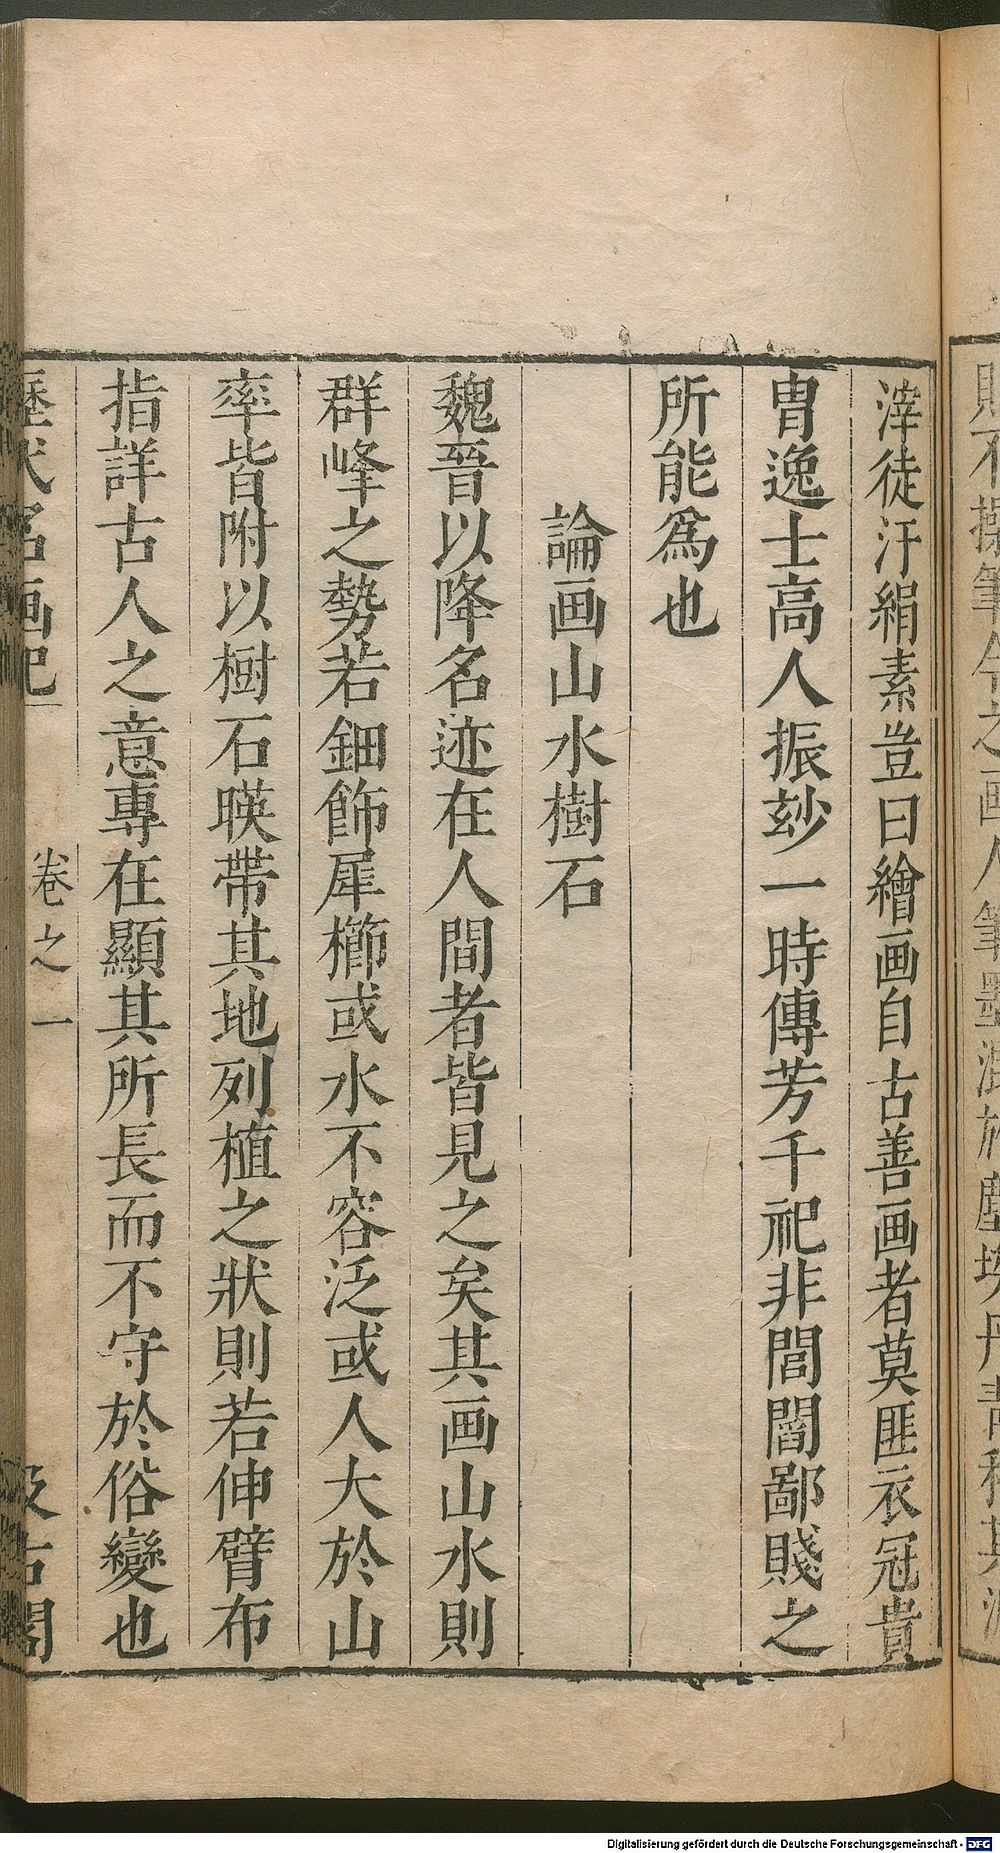 滓徒汙絹素豈曰繪画自古善画者莫匪衣冠貴
胄逸士高人振玅一時傳芳千祀非閭閻鄙賤之
所能爲也
論画山水樹石
魏晉以降名迹在人間者皆見之矣其画山水則
群峰之勢若鈿飾犀櫛或水不容泛或人大於山
率皆附以樹石暎帶其地列植之狀則若伸臂布
指詳古人之意專在顯其所長而不守於俗變也
歷代名画記
卷之一
汲古閣
Digitalisierung gefördert durch die Deutsche Forschungsgemeinschaft - DFG